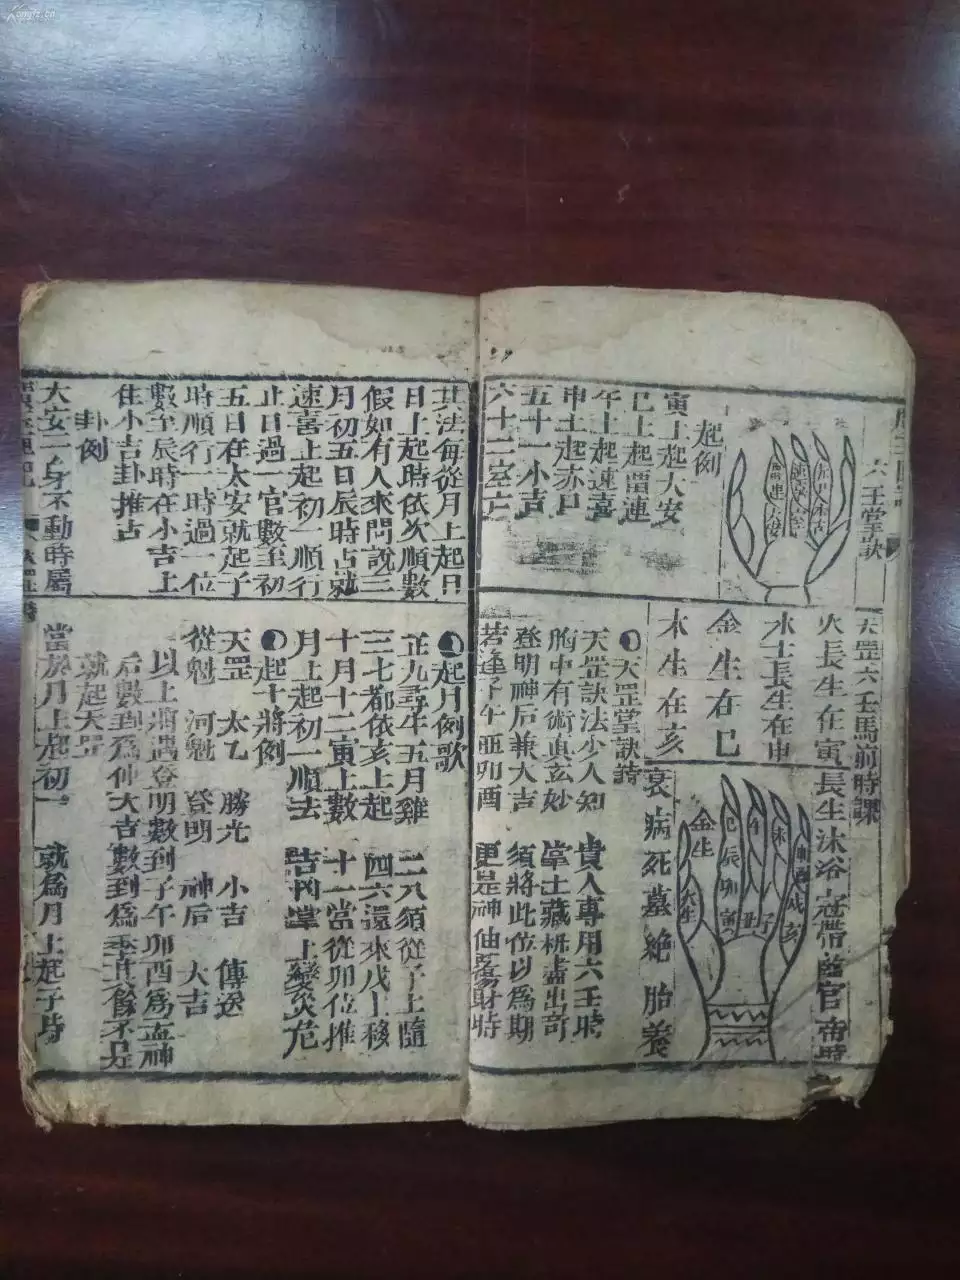 六壬掌訣
起例
寅上起大安
巳上起畱連
午上起速喜
申上起赤口
五十一小吉
六十二空亡
其法每從月上起日
日上起時依次順數
假如有人來問說三
月初五日辰時占就
速喜上起初一順行
止日過一宫數至初
五日在大安就起子
時順行一時過一位
數至辰時在小吉上
隹小吉卦推占
卦例
大安二身不動時屬
天罡六壬馬前時課
火長生在寅
水土長生在申
金生在巳
木生在亥
長生沐浴冠帶臨官帝旺
衰病死墓絶胎養
金生
巳
午
未
辰
卯
寅
丑
子
戌
亥
天罡掌訣詩
天罡訣法少人知 貴人專用六壬時
胸中有術真玄妙 掌上藏機盡出奇
登明神后兼大吉 須將此位以為期
若逢子午並夘酉 更是神仙
起月例歌
正九尋牛五月雞 二八須從子上隨
三七都依亥上起 四六還來戌上移
十月十二寅上數 十一當從卯位推
月上起初一順法
起十將例
天罡 太乙 勝光 小吉 傳送
從魁 河魁 登明 神后 大吉
以上將遇登明數到子午卯酉為孟神
后數到為仲大吉數到為季其餘不足
就起天罡
當於月上起初一 就為月上起子時